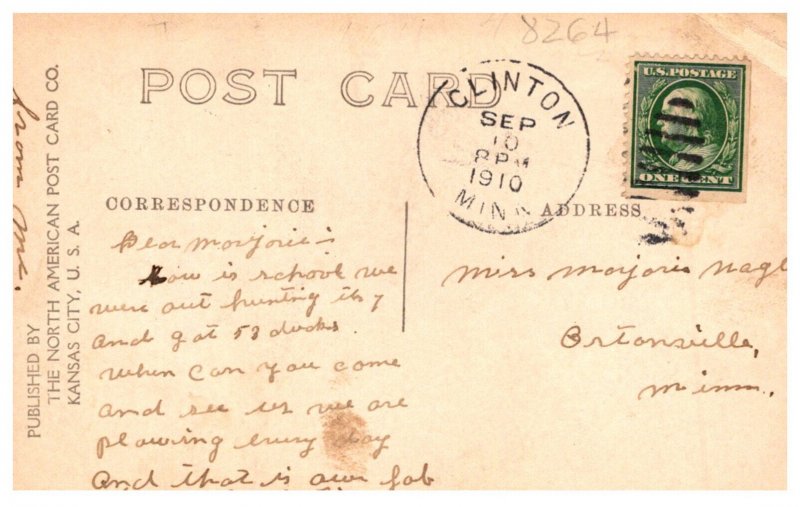 8264
POST CARD
CLINTON
SEP
10
8 PM
1910
MINN
U.S. POSTAGE
ONE CENT
CORRESPONDENCE
ADDRESS
Dear Marjorie:-
How is school we
were out hunting
and got 53 ducks.
when can you come
and see us we are
plowing every day
and that is our job
Miss Marjorie Nagl
Ortonville,
Minn.
from
PUBLISHED BY
THE NORTH AMERICAN POST CARD CO.
KANSAS CITY, U. S. A.